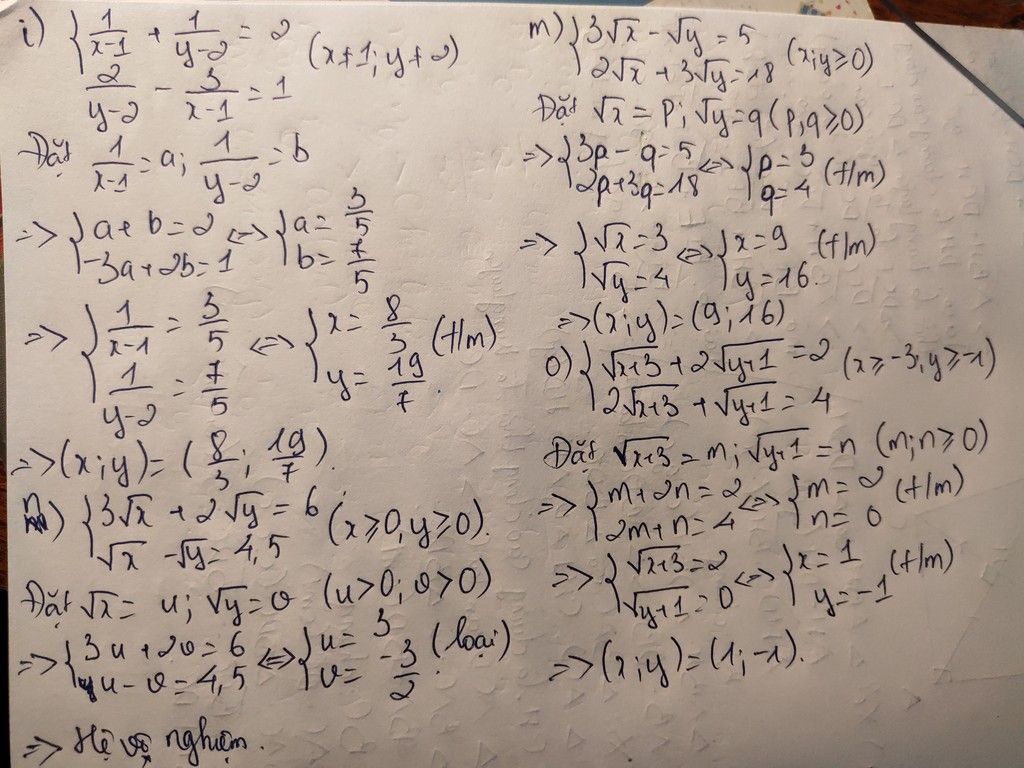 i) { 1/(x-1) + 1/(y-2) = 2
2/(y-2) - 3/(x-1) = 1 (x≠1; y≠2)
Đặt 1/(x-1) = a; 1/(y-2) = b
=> { a+b=2
-3a+2b=1 <=> { a = 3/5
b = 7/5
=> { 1/(x-1) = 3/5
1/(y-2) = 7/5 <=> { x = 8/3
y = 19/7 (t/m)
=> (x;y) = (8/3; 19/7).
n) { 3√x + 2√y = 6
√x - √y = 4,5 (x≥0, y≥0).
Đặt √x = u; √y = v (u>0; v>0)
=> { 3u + 2v = 6
u - v = 4,5 <=> { u = 3
v = -3/2 (loại)
=> Hệ vô nghiệm.
m) { 3√x - √y = 5
2√x + 3√y = 18 (x;y≥0)
Đặt √x = p; √y = q (p,q≥0)
=> { 3p - q = 5
2p+3q = 18 <=> { p = 3
q = 4 (t/m)
=> { √x = 3
√y = 4 <=> { x = 9
y = 16. (t/m)
=> (x;y) = (9;16)
o) { √x+3 + 2√y+1 = 2
2√x+3 + √y+1 = 4 (x≥-3; y≥-1)
Đặt √x+3 = m; √y+1 = n (m;n≥0)
=> { m+2n = 2
2m+n = 4 <=> { m = 2
n = 0 (t/m)
=> { √x+3 = 2
√y+1 = 0 <=> { x = 1
y = -1 (t/m)
=> (x;y) = (1;-1).